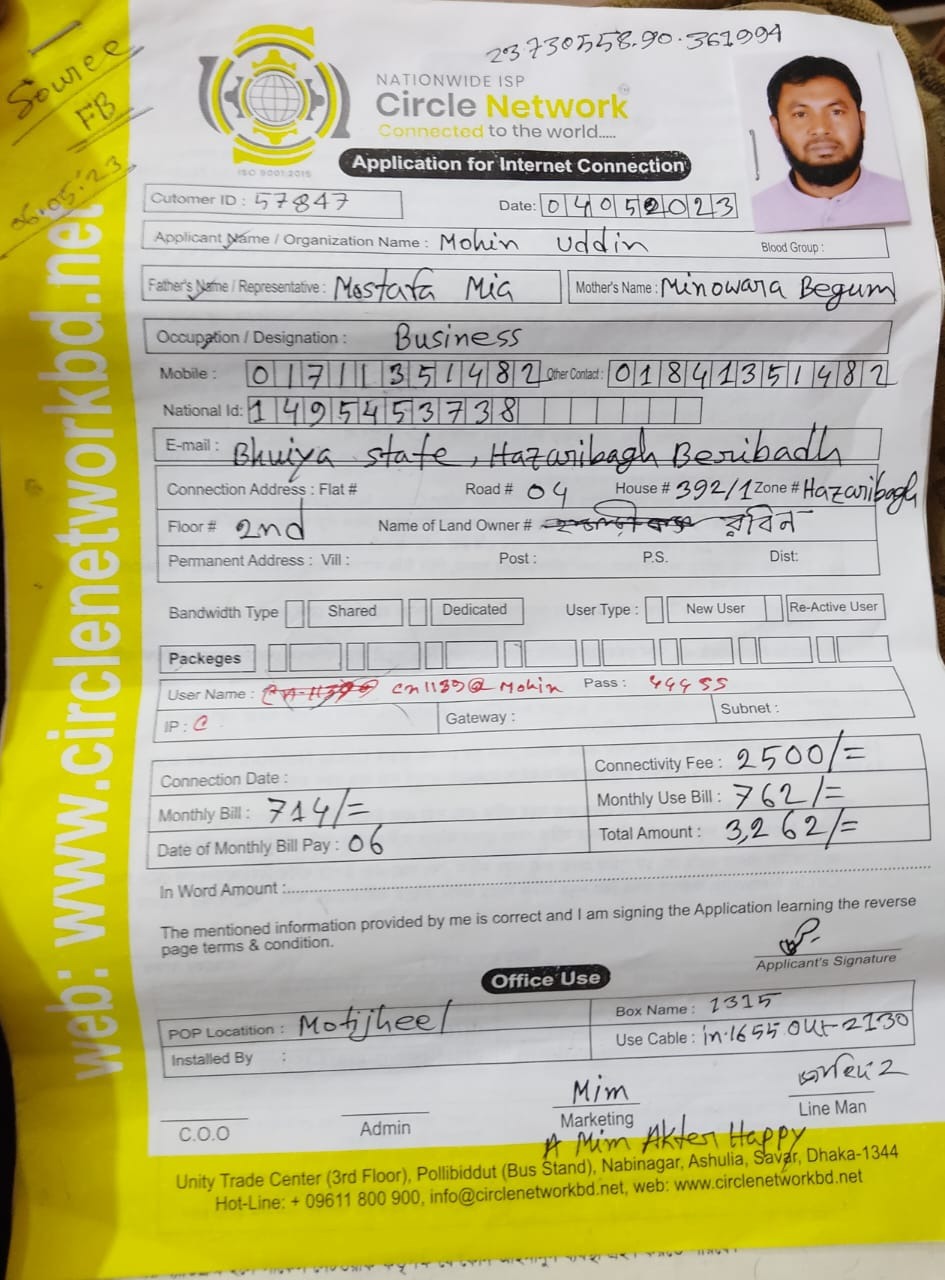 Source
FB
06.05.23
23.730558.90.361994
NATIONWIDE ISP
Circle Network
Connected to the world.....
ISO 9001:2015
Application for Internet Connection
Cutomer ID : 57847
Date: 04052023
Applicant Name / Organization Name : Mohin Uddin Blood Group :
Father's Name / Representative : Mostafa Mia Mother's Name : Minowara Begum
Occupation / Designation : Business
Mobile : 01711351482 Other Contact : 01841351482
National Id: 1495453738
E-mail : Bhuiya state, Hazaribagh Beribadh
Connection Address : Flat # Road # 04 House # 392/1 Zone # Hazaribagh
Floor # 2nd Name of Land Owner # রুবিন
Permanent Address : Vill : Post : P.S. Dist:
Bandwidth Type Shared Dedicated User Type : New User Re-Active User
Packeges
User Name : cn1139@Mohin Pass : 44455
IP : C Gateway : Subnet :
Connection Date : Connectivity Fee : 2500/=
Monthly Bill : 714/= Monthly Use Bill : 762/=
Date of Monthly Bill Pay : 06 Total Amount : 3,262/=
In Word Amount :
The mentioned information provided by me is correct and I am signing the Application learning the reverse
page terms & condition.
Applicant's Signature
Office Use
POP Locatition : Motijheel Box Name : 1315
Installed By : Use Cable : in-1655 Out-2130
Mim
C.O.O Admin Marketing Line Man
A Mim Akter Happy
Unity Trade Center (3rd Floor), Pollibiddut (Bus Stand), Nabinagar, Ashulia, Savar, Dhaka-1344
Hot-Line: + 09611 800 900, info@circlenetworkbd.net, web: www.circlenetworkbd.net
web: www.circlenetworkbd.net